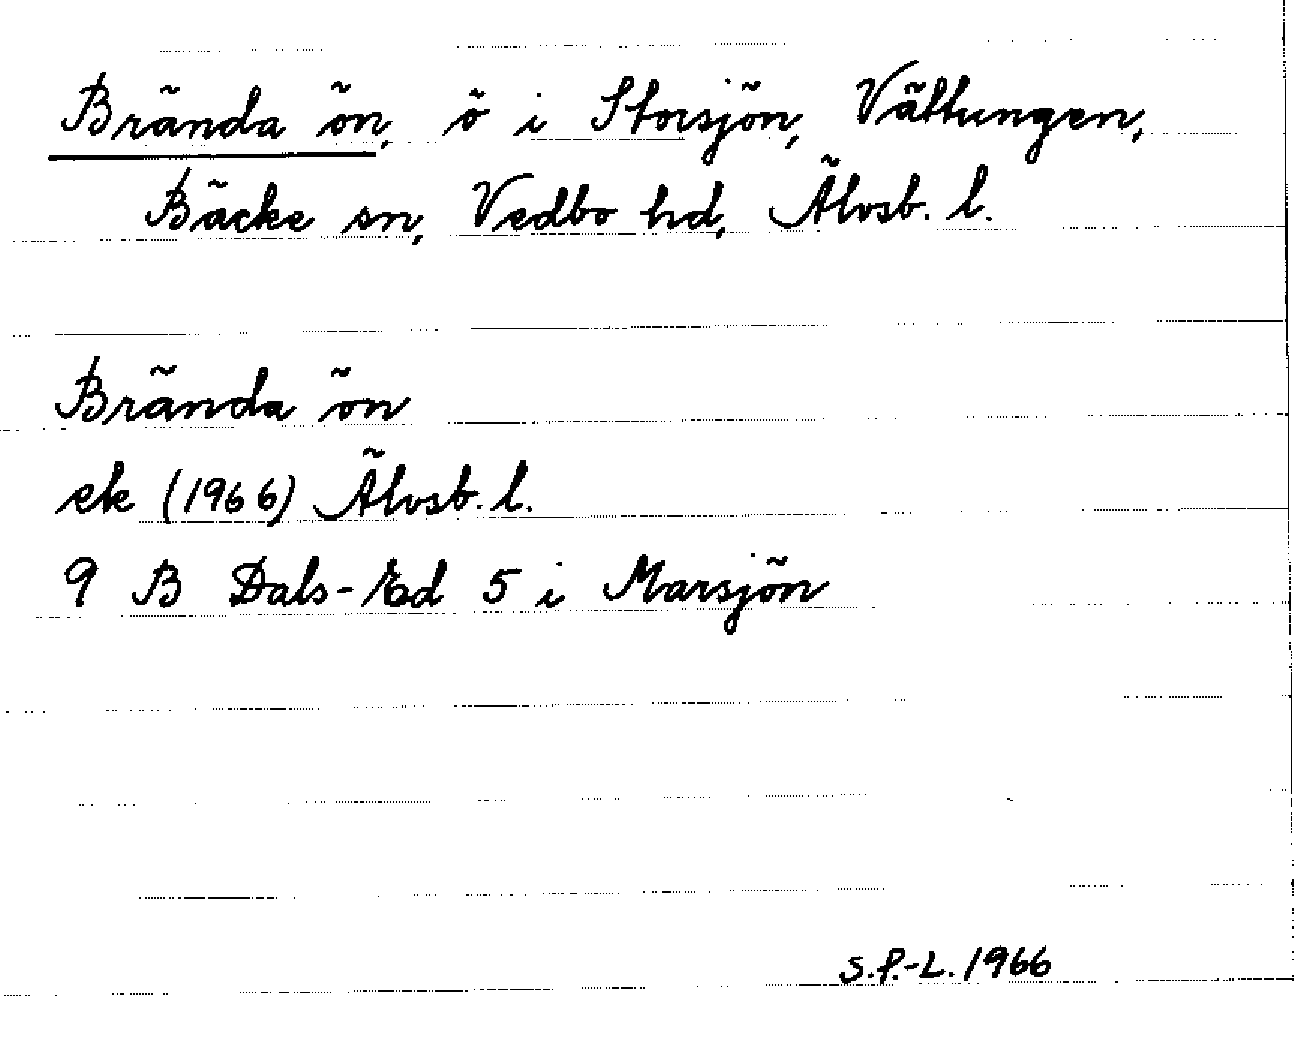 Brända ön, ö i Storsjön, Vättungen,
Bäcke sn, Vedbo hd, Älvsb. l.
Brända ön
ek (1966) Älvsb. l.
9 B Dals-Ed 5 i Marsjön
S.P.-L. 1966